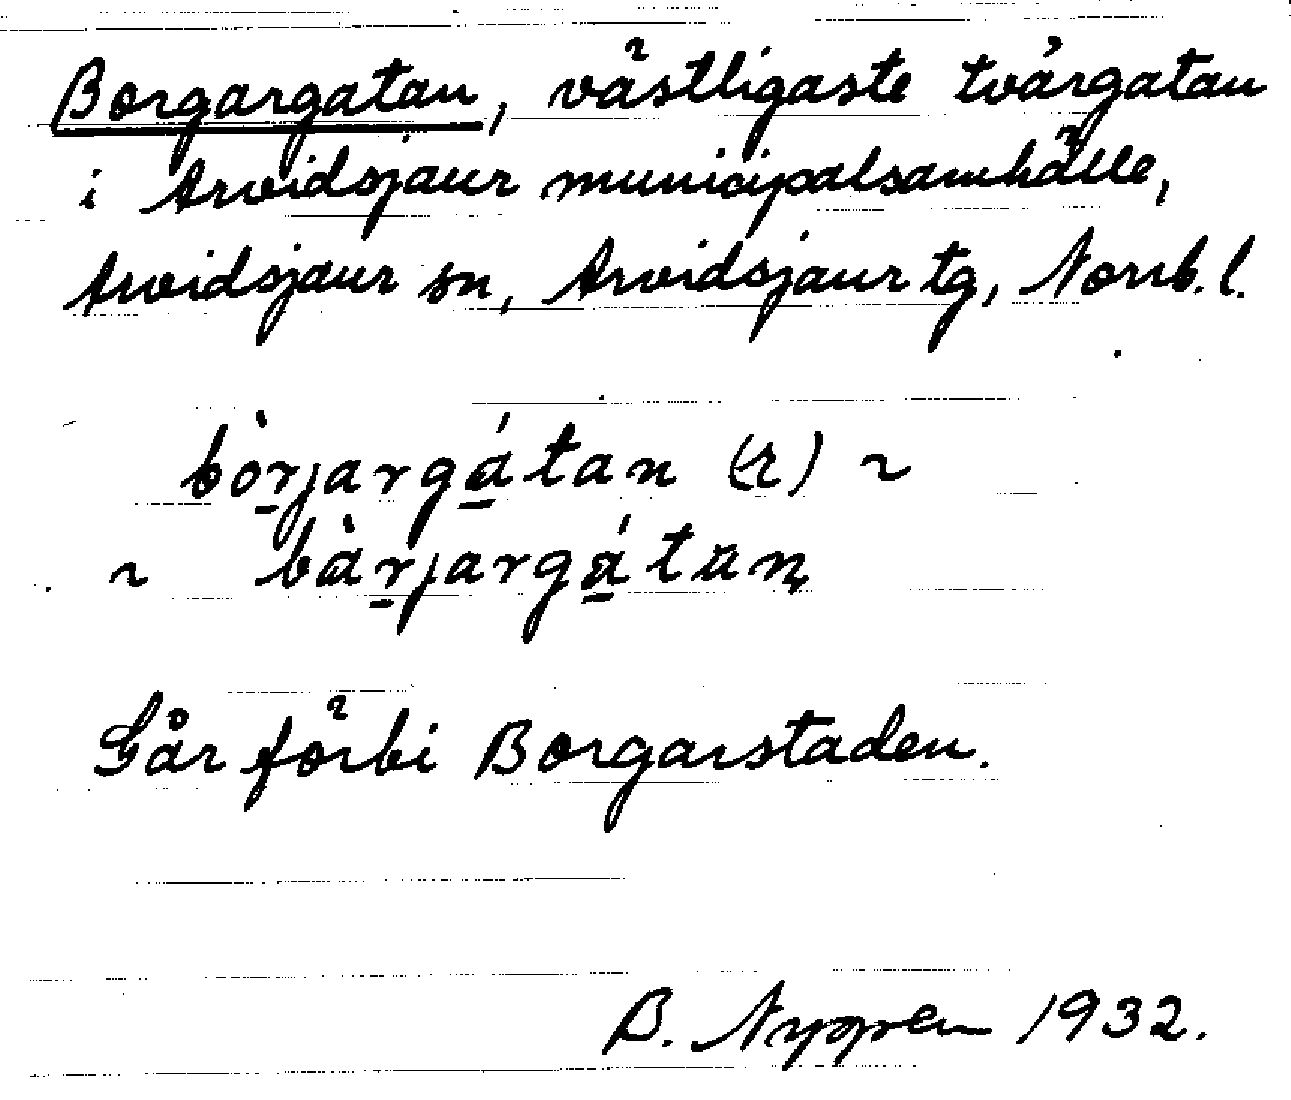 Borgargatan, västligaste tvärgatan
i Arvidsjaur municipalsamhälle,
Arvidsjaur sn, Arvidsjaur tg, Norrb. l.
bòrjargátan (r) ~
~ bàrjargátan
Går förbi Borgarstaden.
B. Nyppen 1932.